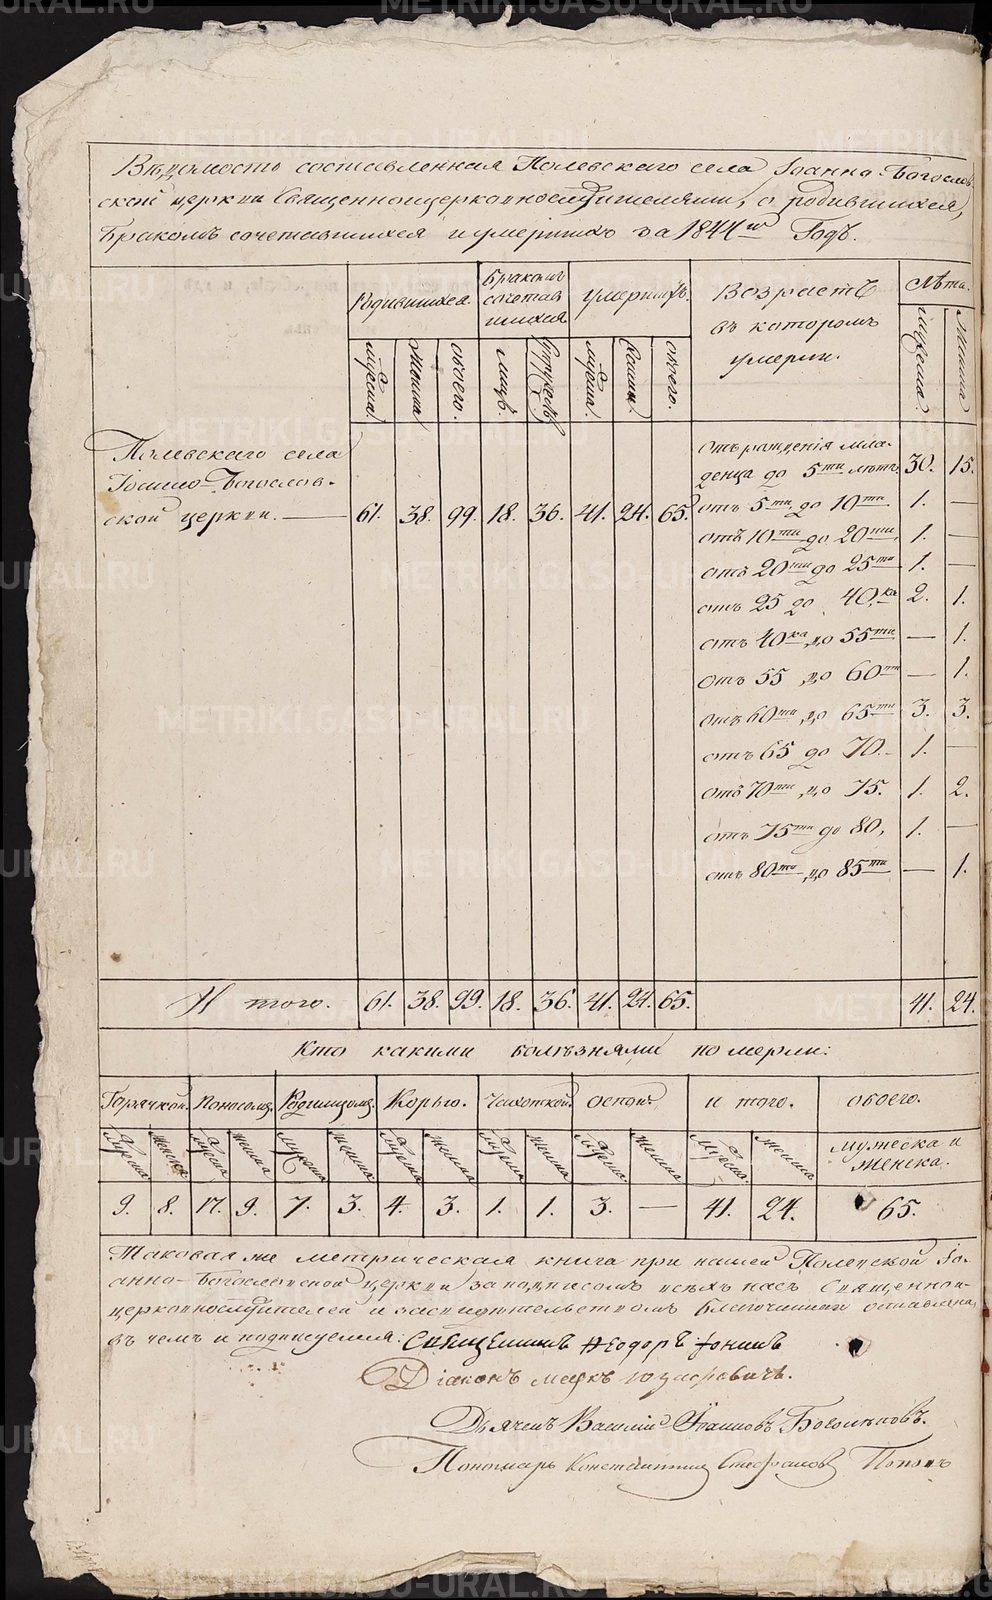 METRIKI.GASO-URAL.RU
Вѣдомость составленная Полевскаго села Іоанно-Богослов-
ской церкви Священноцерковнослужителями, о родившихся,
бракомъ сочетавшихся и умершихъ за 1844й Годъ.
Родившихся
Бракомъ сочетавшихся
умершихъ.
Возрастъ въ которомъ умерли.
Лѣта.
мужеска. женска обоего. лицъ. супружествъ мужеска. женска. обоего. мужеска. женска
Полевскаго села
Іоанно-Богослов-
ской церкви. — 61. 38. 99. 18. 36. 41. 24. 65.
отъ рожденія мла-
денца до 5ти лѣтъ. 30. 15.
отъ 5ти до 10ти 1. —
отъ 10ти до 20ти, 1. —
отъ 20ти до 25ти 1. —
отъ 25 до 40.ка 2. 1.
отъ 40ка до 55ти — 1.
отъ 55 до 60ти — 1.
отъ 60ти до 65ти 3. 3.
отъ 65 до 70. 1. —
отъ 70ти до 75. 1. 2.
отъ 75ти до 80, 1. —
отъ 80ти до 85ти — 1.
И того. 61. 38. 99. 18. 36. 41. 24. 65. 41. 24.
Кто какими болѣзнями померли:
Горячкой. Поносомъ. Родимцомъ. Корью. Чахоткой. оспой. и того. обоего.
мужеска женска мужеска женска мужеска женска мужеска женска мужеска женска мужеска женска мужеска женска мужеска и женска.
9. 8. 17. 9. 7. 3. 4. 3. 1. 1. 3. — 41. 24. 65.
Таковая же метрическая книга при нашей Полевской Іо-
анно-Богословской церкви за подписомъ всѣхъ насъ Священно-
церковнослужителей и засвидѣтельствомъ Благочиннаго оставлена,
въ чемъ и подписуемся: Священникъ Ѳеодоръ
Діаконъ
Дьячекъ Василій Іоанновъ Боголѣповъ.
Пономарь Константинъ Стефановъ Поповъ